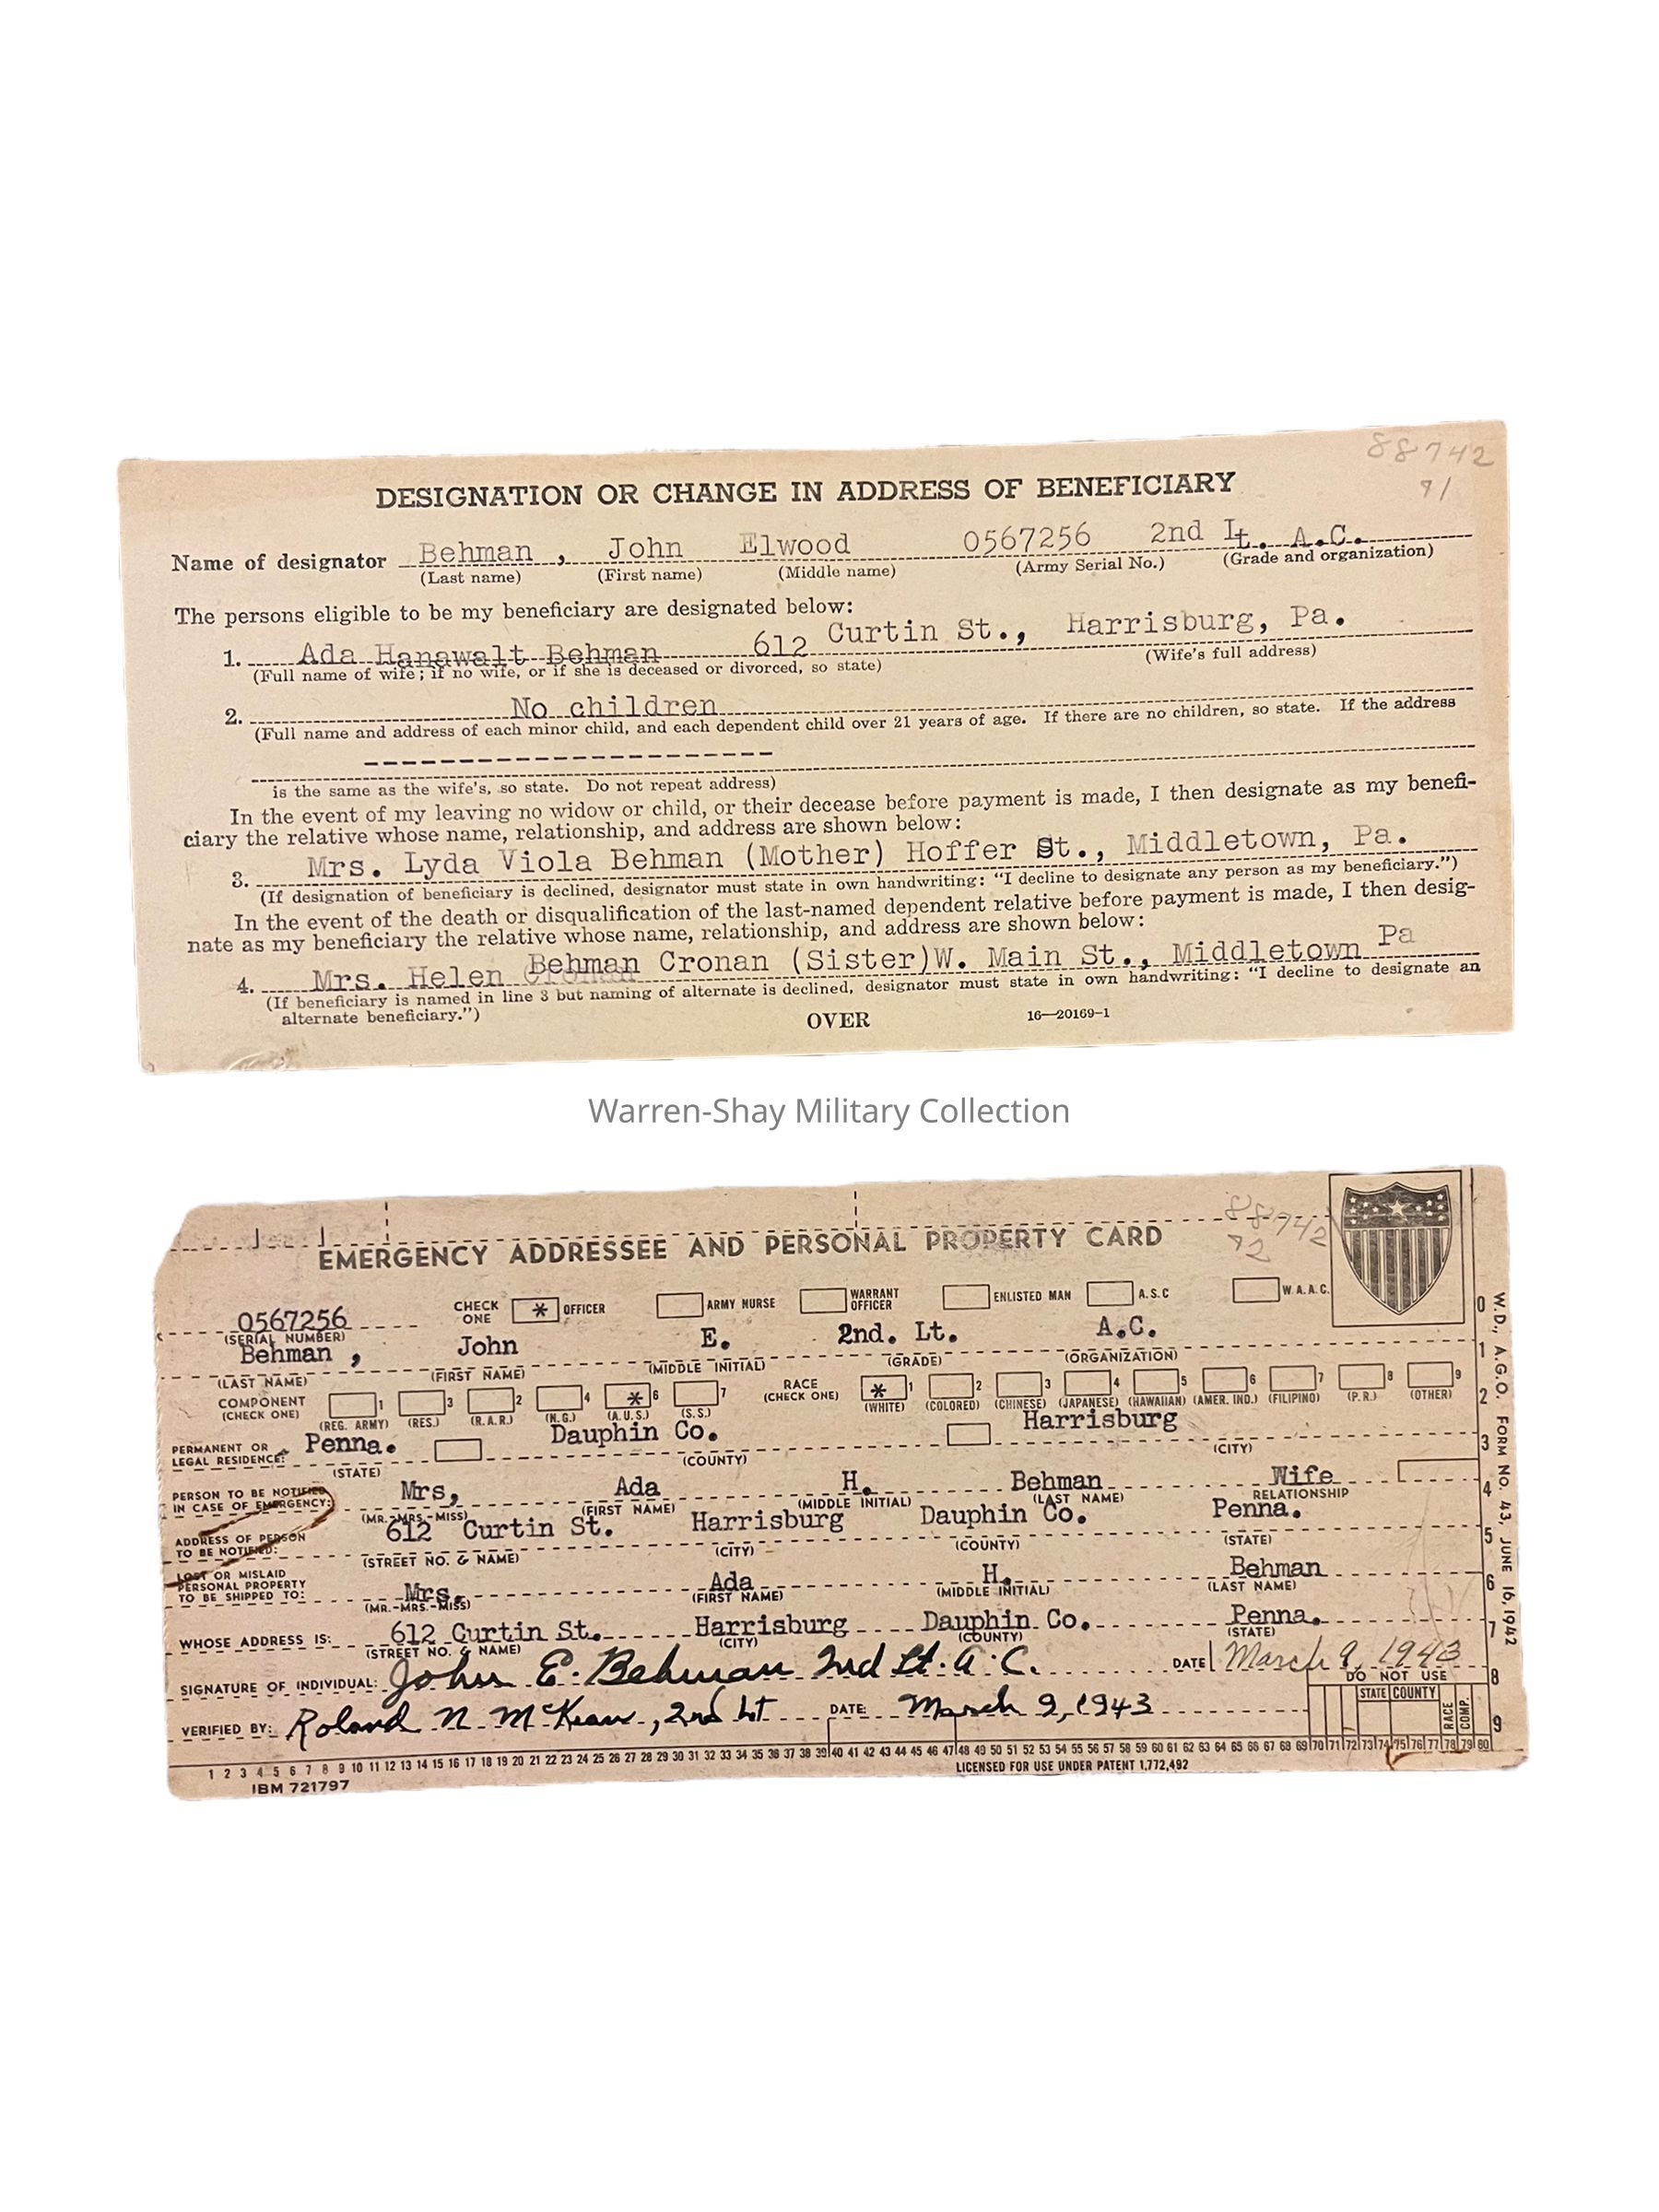 88742
71
DESIGNATION OR CHANGE IN ADDRESS OF BENEFICIARY
Name of designator Behman , John Elwood 0567256 2nd Lt. A.C.
(Last name) (First name) (Middle name) (Army Serial No.) (Grade and organization)
The persons eligible to be my beneficiary are designated below:
1. Ada Hanawalt Behman 612 Curtin St., Harrisburg, Pa.
(Full name of wife; if no wife, or if she is deceased or divorced, so state) (Wife's full address)
2. No children
(Full name and address of each minor child, and each dependent child over 21 years of age. If there are no children, so state. If the address
is the same as the wife's, so state. Do not repeat address)
In the event of my leaving no widow or child, or their decease before payment is made, I then designate as my benefi-
ciary the relative whose name, relationship, and address are shown below:
3. Mrs. Lyda Viola Behman (Mother) Hoffer St., Middletown, Pa.
(If designation of beneficiary is declined, designator must state in own handwriting: "I decline to designate any person as my beneficiary.")
In the event of the death or disqualification of the last-named dependent relative before payment is made, I then desig-
nate as my beneficiary the relative whose name, relationship, and address are shown below:
4. Mrs. Helen Behman Cronan (Sister)W. Main St., Middletown Pa
(If beneficiary is named in line 3 but naming of alternate is declined, designator must state in own handwriting: "I decline to designate an
alternate beneficiary.")
OVER 16—20169-1
Warren-Shay Military Collection
88742
72
EMERGENCY ADDRESSEE AND PERSONAL PROPERTY CARD
0567256 CHECK ONE * OFFICER ARMY NURSE WARRANT OFFICER ENLISTED MAN A.S.C W.A.A.C.
(SERIAL NUMBER)
Behman , John E. 2nd. Lt. A.C.
(LAST NAME) (FIRST NAME) (MIDDLE INITIAL) (GRADE) (ORGANIZATION)
COMPONENT (CHECK ONE) 1 3 2 4 * 6 7 RACE (CHECK ONE) * 1 2 3 4 5 6 7 8 9
(REG. ARMY) (RES.) (R.A.R.) (N.G.) (A.U.S.) (S.S.) (WHITE) (COLORED) (CHINESE) (JAPANESE) (HAWAIIAN) (AMER. IND.) (FILIPINO) (P.R.) (OTHER)
PERMANENT OR LEGAL RESIDENCE: Penna. Dauphin Co. Harrisburg
(STATE) (COUNTY) (CITY)
PERSON TO BE NOTIFIED IN CASE OF EMERGENCY: Mrs, Ada H. Behman Wife
(MR.-MRS.-MISS) (FIRST NAME) (MIDDLE INITIAL) (LAST NAME) RELATIONSHIP
ADDRESS OF PERSON TO BE NOTIFIED: 612 Curtin St. Harrisburg Dauphin Co. Penna.
(STREET NO. & NAME) (CITY) (COUNTY) (STATE)
LOST OR MISLAID PERSONAL PROPERTY TO BE SHIPPED TO: Mrs. Ada H. Behman
(MR.-MRS.-MISS) (FIRST NAME) (MIDDLE INITIAL) (LAST NAME)
WHOSE ADDRESS IS: 612 Curtin St. Harrisburg Dauphin Co. Penna.
(STREET NO. & NAME) (CITY) (COUNTY) (STATE)
SIGNATURE OF INDIVIDUAL: John E. Behman 2nd Lt. A.C. DATE March 9, 1943
DO NOT USE
STATE COUNTY RACE COMP.
VERIFIED BY: Roland N. McKean, 2nd Lt DATE: March 9, 1943
1 2 3 4 5 6 7 8 9 10 11 12 13 14 15 16 17 18 19 20 21 22 23 24 25 26 27 28 29 30 31 32 33 34 35 36 37 38 39 40 41 42 43 44 45 46 47 48 49 50 51 52 53 54 55 56 57 58 59 60 61 62 63 64 65 66 67 68 69 70 71 72 73 74 75 76 77 78 79 80
IBM 721797 LICENSED FOR USE UNDER PATENT 1,772,492
0 1 2 3 4 5 6 7 8 9
W.D., A.G.O. FORM NO. 43, JUNE 16, 1942